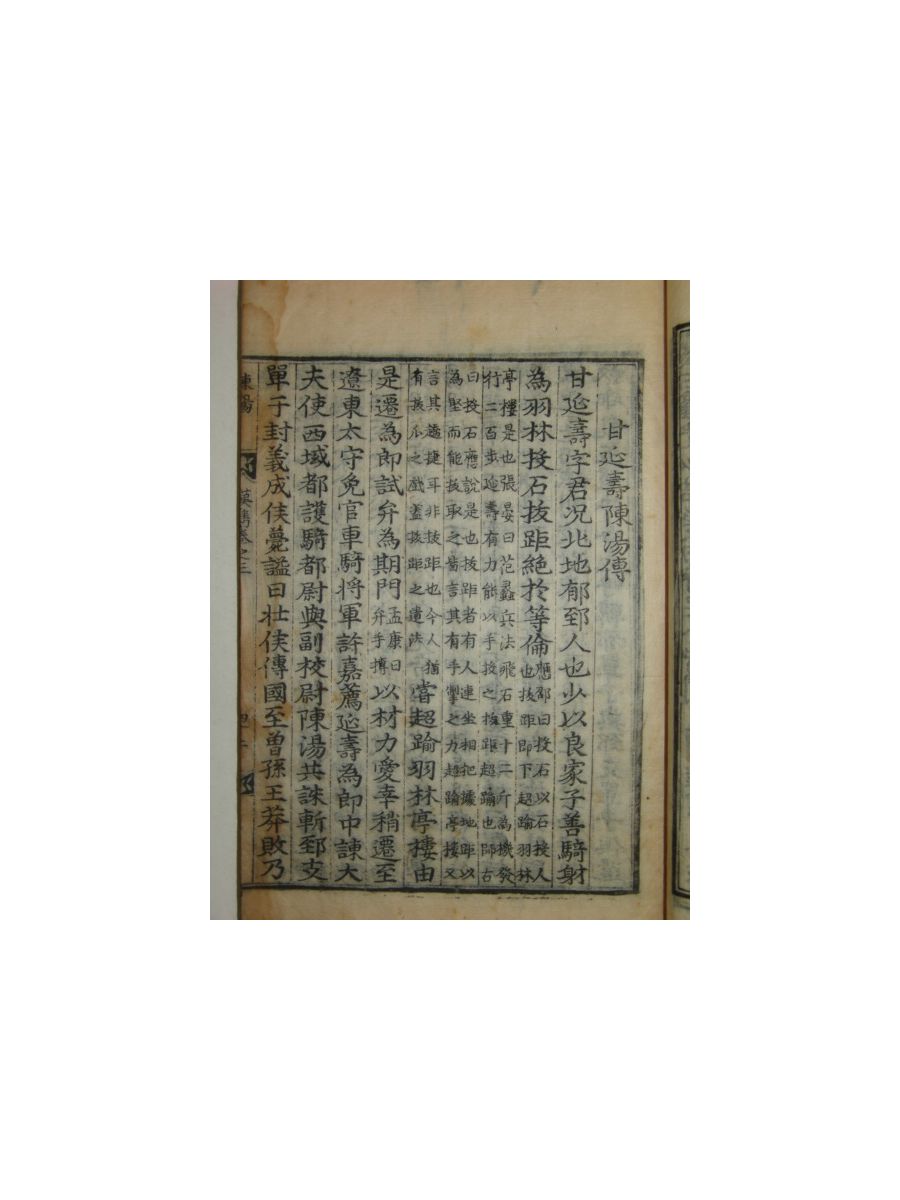 甘延壽陳湯傳
甘延壽字君况北地郁郅人也少以良家子善騎射
為羽林投石拔距絶扵等倫
應邵曰投石以石投人
也拔距即下超踰羽林
亭樓是也張晏曰范蠡兵法飛石重十二斤為機發
行二百步延壽有力能以手投之拔距超踰也師古
曰投石應説是也拔距者有人連坐相把據地距以
為堅而能拔取之皆言其有手掔之力超踰亭樓又
言其趫捷耳非拔距也今人猶
有拔爪之戯盖拔距之遺法
嘗超踰羽林亭樓由
是遷為郎試弁為期門
孟康曰
弁手搏
以材力愛幸稍遷至
遼東太守免官車騎将軍許嘉薦延壽為郎中諌大
夫使西域都護騎都尉與副校尉陳湯共誅斬郅支
單于封義成侯薨謚曰壮侯傳國至曽孫王莽敗乃
陳湯
卷之三